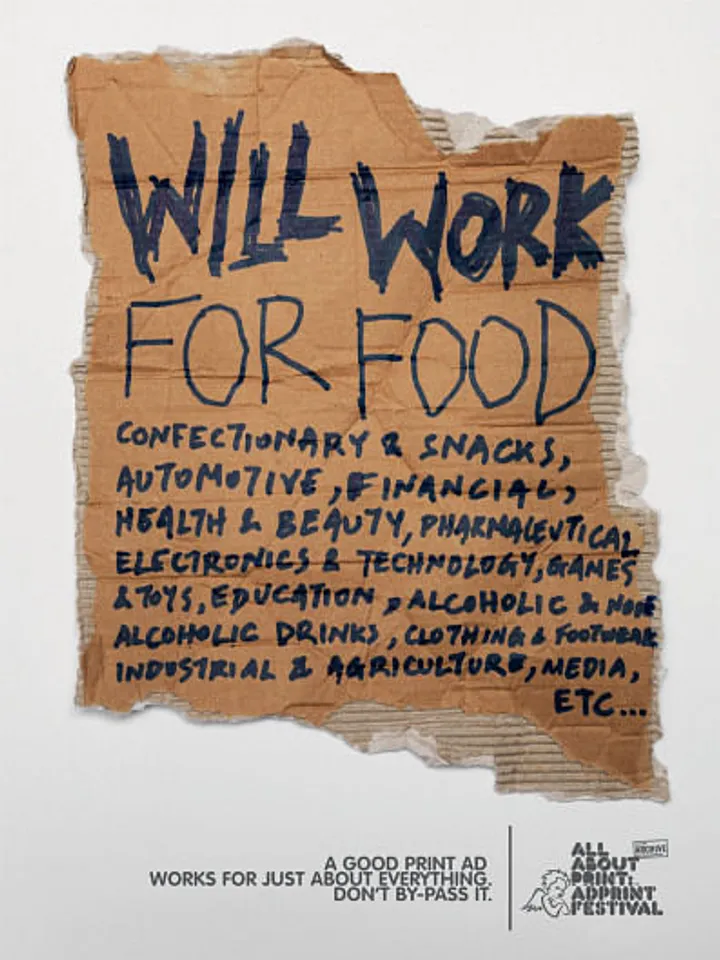 WILL WORK
FOR FOOD
CONFECTIONARY & SNACKS,
AUTOMOTIVE, FINANCIAL,
HEALTH & BEAUTY, PHARMACEUTICAL
ELECTRONICS & TECHNOLOGY, GAMES
& TOYS, EDUCATION, ALCOHOLIC & NONE
ALCOHOLIC DRINKS, CLOTHING & FOOTWEAR
INDUSTRIAL & AGRICULTURE, MEDIA,
ETC...
A GOOD PRINT AD
WORKS FOR JUST ABOUT EVERYTHING.
DON'T BY-PASS IT.
ALL
ABOUT
PRINT:
ADPRINT
FESTIVAL
ARCHIVE